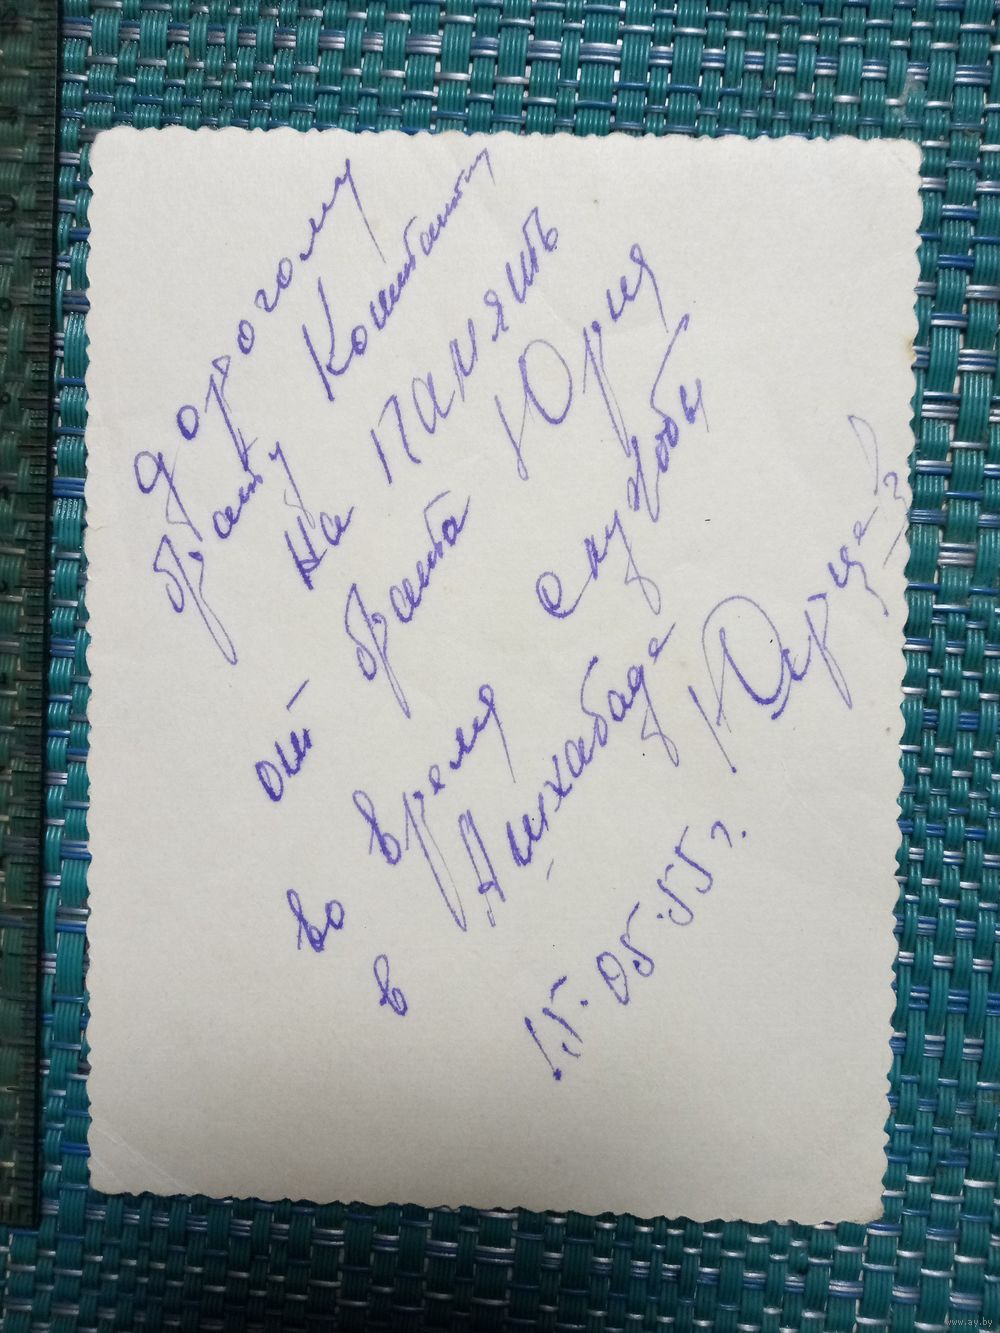 дорогому
брату Константину
на память
от брата Юрия
во время службы
в Ашхабаде
15.05.55 г.
www.ay.by